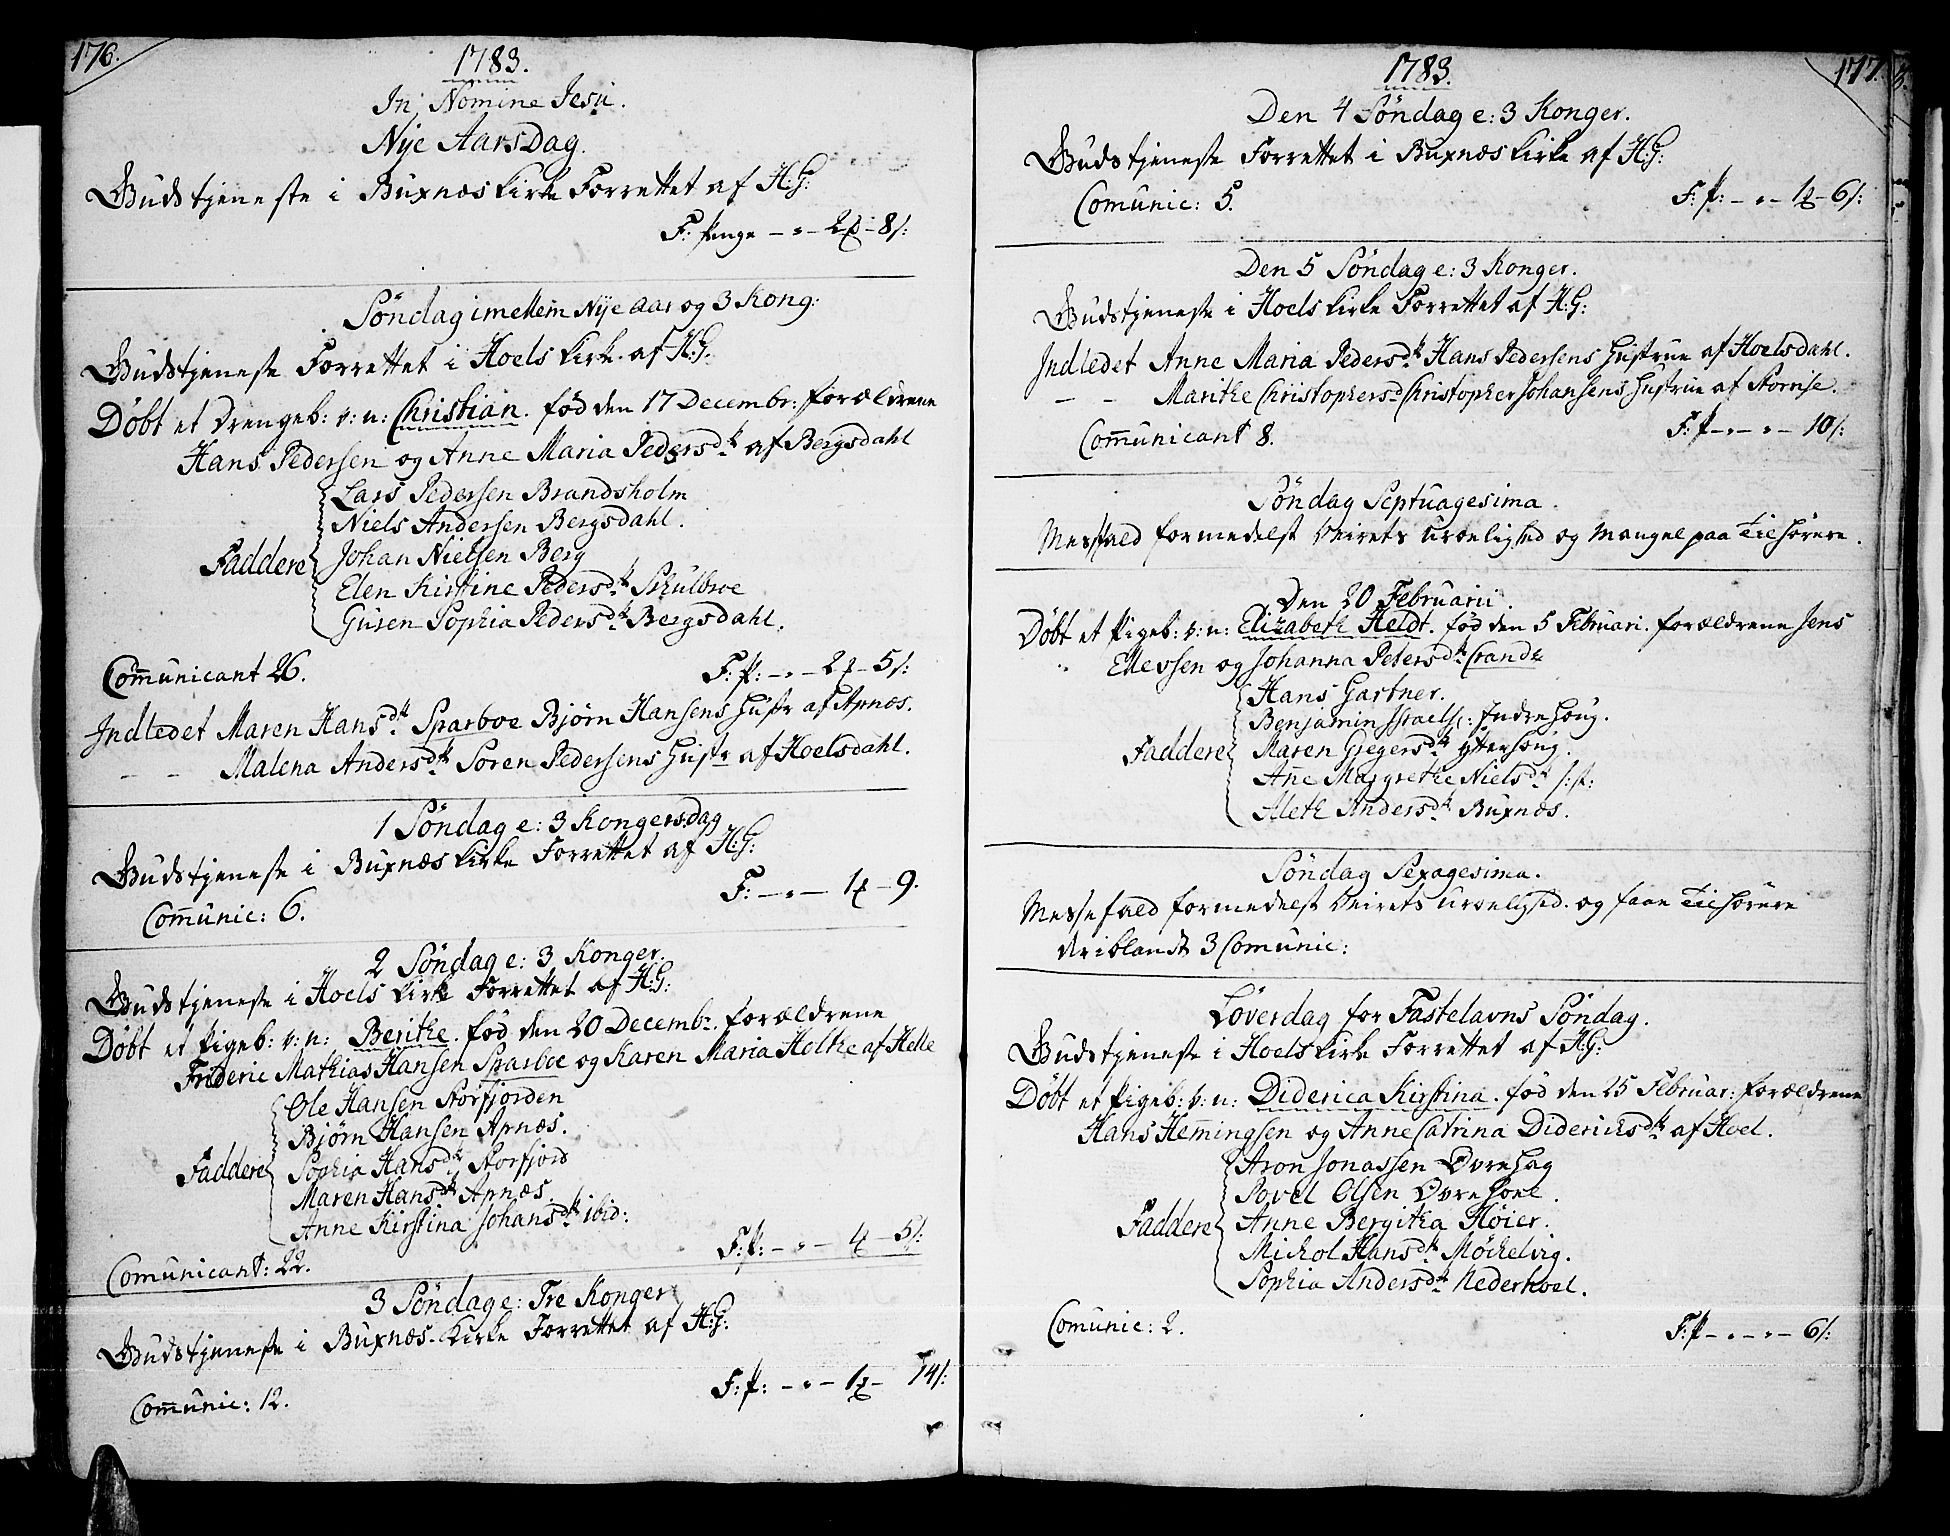 176.
1783.
In Nomine Jesu.
Nÿe AarsDag.
Gudstjeneste i Buxnæs Kirke Forrettet af H:G:
F: penge - " - 2 - 8 s:
Söndag imellem Nÿe aar og 3 Kong:
Gudstjeneste Forrettet i Hoels Kirke af H:G:
Döbt et Drengeb: v: n: Christian. fød den 17 Decembr: forældrene
Hans Pedersen og Anne Maria Pedersd. af Bergsdahl
Lars Pedersen Brandsholm
Niels Andersen Bergsdahl.
Faddere Johan Nielsen Berg
Elen Kirstine Pedersd. Schulbroe
Guren Sophia Pedersd. Bergsdahl.
Com̄unicant 26.
F: p: - " - 2 - 5 s:
Indledet Maren Hansd. Sparboe Bjørn Hansens Hustr af Apnæs.
- - Malena Andersd. Sören Pedersens Hustr af Hoelsdahl.
1 Söndag e: 3 Kongersdag
Gudstjeneste i Buxnæs Kirke Forrettet af H:G:
F: - " - 1 - 9.
Com̄unic: 6.
2 Söndag e: 3 Konger.
Gudstjeneste i Hoels Kirke Forrettet af H:G:
Döbt et Pigeb: v: n: Berithe. fød den 20 Decembr. forældrene
Frideric Mathias Hansen Sparboe og Karen Maria Holthe af Helle
Ole Hansen Storfjorden
Bjørn Hansen Apnæs.
Faddere Sophia Hansd. Storfjord
Maren Hansd. Apnæs.
Anne Kirstina Johansd. ibid:
F: p: - " - 4 - 5 s:
Comunicant: 22.
3 Söndag e: Tre Konger
Gudstjeneste i Buxnæs Kirke Forrettet af H:G:
F: p: - " - 1 - 14 s:
Com̄unic: 12.
177.
1783.
Den 4 Söndag e: 3 Konger.
Gudstjeneste Forrettet i Buxnæs Kirke af H:G:
Comunic: 5.
F: p: - " - 1 - 6 s:
Den 5 Söndag e: 3 Konger.
Gudstjeneste i Hoels Kirke Forrettet af H:G:
Indledet Anne Maria Pedersd. Hans Pedersens Hustrue af Hoelsdahl.
- - Marithe Christophersd Christopher Johansens Hustrue af Storrise.
Com̄unicant 8.
F: p - " - " - 10 s:
Söndag Septuagesima.
Messfald formedelst Veirets Uroelighed og Mangel paa Tilhørere.
Den 20 Februarii.
Döbt et Pigeb: v: n: Elizabeth Heldt. fød den 5 Februari. forældrene Jens
Ellevsen og Johanna Petersd. Crande
Hans Gartner.
Benjamin Israels: Indrehoug.
Faddere Maren Gregersd. Ytterhoug.
An̄e Margrethe Nielsd. s: st:
Aleth Andersd. Buxnæs.
Söndag Sexagesima.
Messefald formedelst Veirets Uroelighed. og faae Tilhørere
deriblandt 3 Comunic:
Löverdag for Fastelavns Söndag.
Gudstjeneste i Hoels Kirke Forrettet af H:G:
Döbt et Pigeb: v: n: Diderica Kirstina. fød den 25 Februar: forældrene
Hans Hem̄ingsen og Anne Catrina Didericksd. af Hoel.
Aron Jonassen Øvrehag
Povel Olsen Øvrehoel.
Faddere Anne Bergitha Høier.
Mickol Hansd. Möckelvig.
Sophia Andersd. Nederhoel.
Comunic: 2.
F: p - " - " - 6 s: